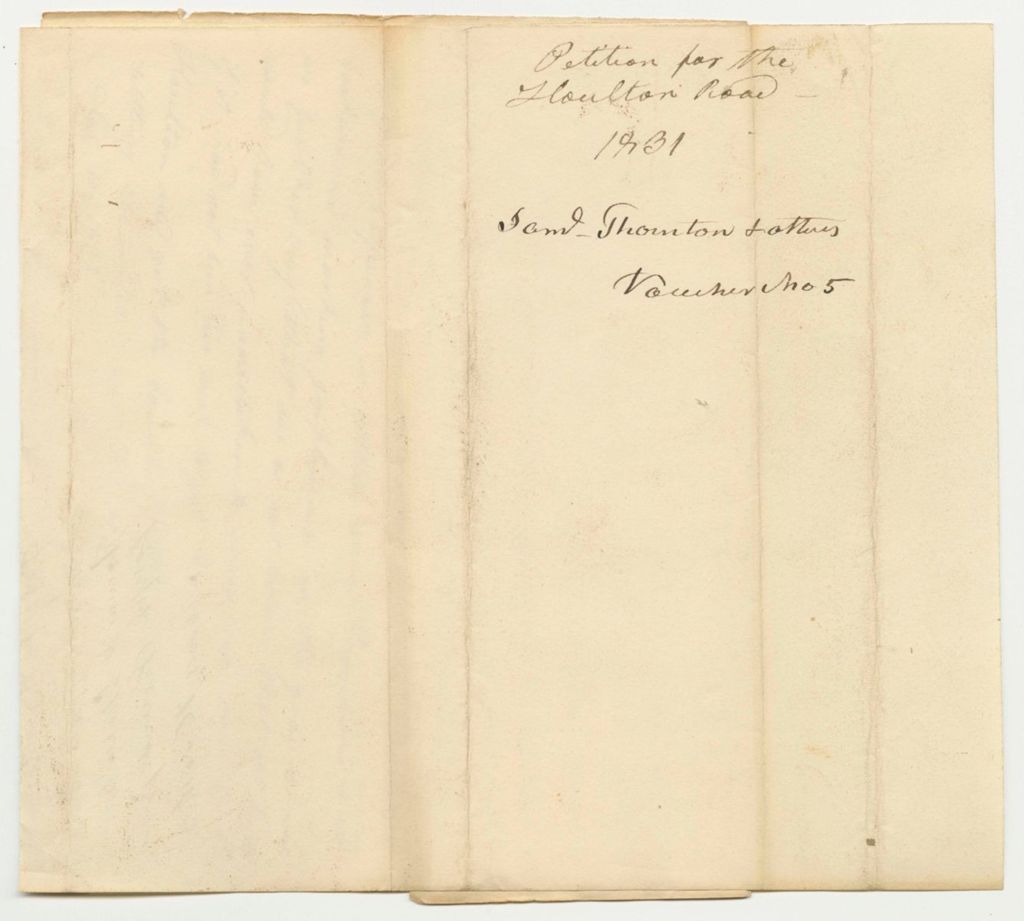 Petition for the
Houlton Road —
1831
Samd Thornton & others
Voucher No 5